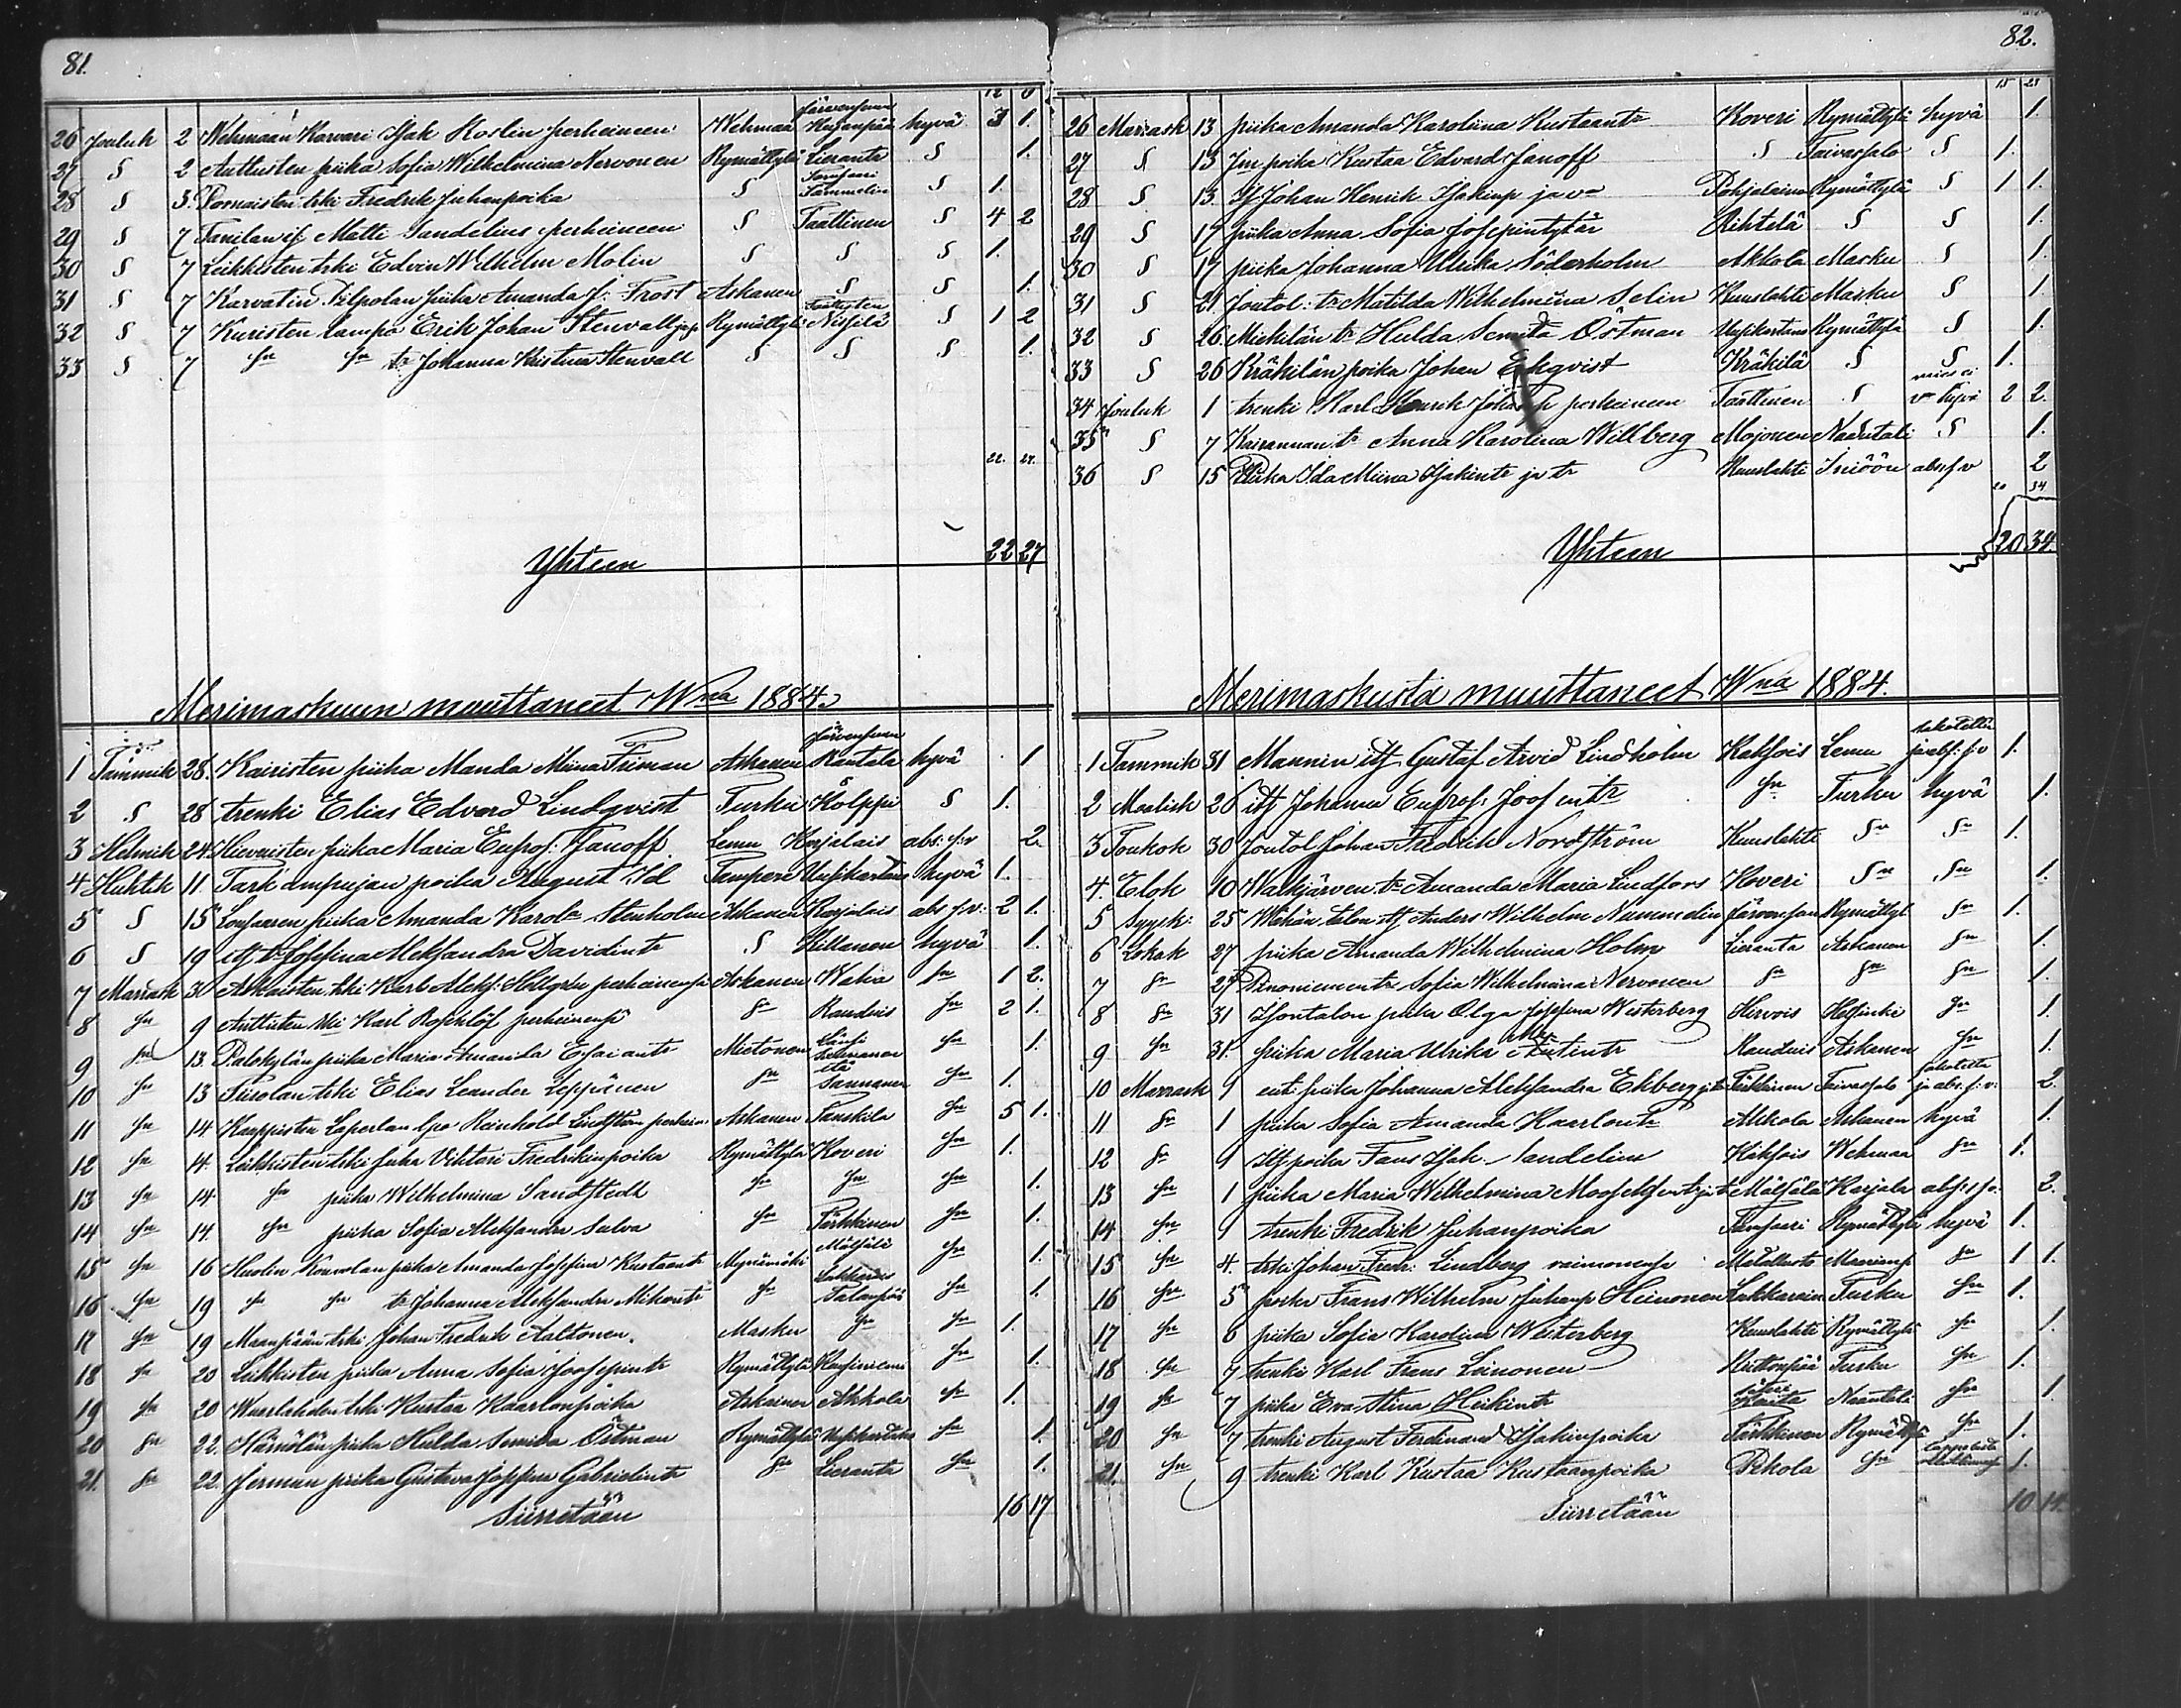 81.
12 0
26 Jouluk 2 Wehmaan Karvari Isak Koslin perheineen Wehmaa Järvensuun Haijanpää hyvä 3 1.
27 S 2 Anttisten piika Sofia Wilhelmina Nervonen Rymättylä Lieranta S 1.
28 S 3. Pornaisten trki Fredrik Juhanpoika S Samsaari Sammelin S 1.
29 S 7 Tanilan itf Matti Sandelius perheineen S Taattinen S 4 2
30 S 7 Leikkisten trki Edvin Wilhelm Molin S S S 1.
31 S 7 Karvatin Pilpolan piika Amanda J. Frost Askanen S S 1.
32 S 7 Kuristen lampa Erik Johan Stenvall ja p Rymättylä Nissilä S 1 2
33 S 7 sn sn tr Johanna Kristina Stenvall S S S 1.
22. 27.
Yhteen 22 27
Merimaskuun muuttaneet Wna 1884.
1 Tammik 28. Kairisten piika Manda Miina Friman Askanen Järvensuun Rantala hyvä 1
2 S 28 trenki Elias Edvard Lindqvist Turku Kolppi S 1.
3 Helmik 24. Hievaisten piika Maria Eufros: Janoff Lemu Karjalais abs: f:v 2.
4 Huhtik 11. Tark'ampujan poika August Id Tampere Uusikartano hyvä 1.
5 S 15 Lonsaaren piika Amanda Karola Stenholm Askanen Karjalais abs f:v: 2 1.
6 S 19 itf tr Josefina Aleksandra Davidintr S Killanen hyvä 1.
7 Marrask 30 Askaisten trki Karl Aleks: Hellgren perheinensä Askanen Wahva sn 1 2.
8 sn 9 Anttisten trki Karl Rosenlöf perheinensä sn Rauduis sn 2 1.
9 sn 13. Palokylän piika Maria Amanda Esaiantr Mietonen Länsi Killmanen sn 1.
10 sn 13 Tiirolan trki Elias Leander Leppänen sn itä Sannanen sn 1.
11 sn 14 Karppisten Laperlan lpo Reinhold Lindström perheine Askanen Tanskila sn 5 1.
12 sn 14. Leikkisten trki Juha Viktori Fredrikinpoika Rymättylä Koveri sn 1.
13 sn 14. sn piika Wilhelmina Sandstedt sn sn sn 1.
14 sn 14. sn piika Sofia Aleksandra Salva sn Särkkinen sn 1.
15 sn 16 Huolin Kouvolan piika Amanda Josefina Kustaantr Mynämäki Mälsälä sn 1.
16 sn 19 sn sn tr Johanna Aleksandra Mikontr sn Lukkarais Salanpää sn 1.
17 sn 19 Maanpään trki Johan Fredrik Aaltonen. Masku sn sn 1
18 sn 20 Leikkisten piika Anna Sofia Joosepintr Rymättylä Karsiniemi sn 1.
19 sn 20 Wuorlahden trki Kustaa Kaarlonpoika Askainen Akkola sn 1.
20 sn 22. Härmälän piika Hulda Semida Östman Rymättylä Uusikartano sn 1.
21. sn 22. Jerman piika Gustava Josefina Gabrielintr sn Lieranta sn 1.
Siirretään 16 17
82.
15 23
26 Marrask 13 piika Amanda Karoliina Kustaantr Koveri Rymättylä hyvä 1.
27 S 13 Jm poika Kustaa Edvard Janoff S Taivassalo S 1.
28 S 13. If Johan Henrik Isakinp ja va Pohjalainen Rymättylä S 1 1.
29 S 17 piika Anna Sofia Josepintytär Rihtelä S S 1.
30 S 17 piika Johanna Ulrika Söderholm Akkola Masku S 1.
31 S 21 Joutol: tr Matilda Wilhelmiina Selin Kuuslahti Masku S 1.
32 S 26. Mickilän tr Hulda Semida Östman Uusikartano Rymättylä S 1.
33 S 26 Kräkilän poika Johan Ekqvist Kräkilä S S 1.
34 Jouluk 1 trenki Karl Henrik Johanp perheineen Taattinen S mies ei va hyvä 2 2.
35 S 7 Kairannan tr Anna Karolina Willberg Mojonen Naantali S 1.
36 S 15 Piika Ida Miina Isakintr ja tr Kuuslahti Iniöön abs: f. v 2
20 34
Yhteen 20 34.
Merimaskusta muuttaneet Wna 1884.
1 Tammik 31 Mannin itf Gustaf Arvid Lindholm Kaksois Lemu rakotettu ja abs: f: v 1.
2 Maalisk 26 itf Johanna Eufros: Joosentr sn Turku hyvä 1.
3 Toukok 30 Joutol Johan Fredrik Nordström Kuuslahti sn sn 1.
4. Elok 10 Walkjärven tr Amanda Maria Lindfors Koveri sn sn 1.
5 Syysk: 25 Wähän talon itf Anders Wilhelm Nummelin Järvensuu Rymättyl sn 1.
6 Lokak 27 piika Amanda Wilhelmina Holm Lieranta Askanen sn 1.
7 sn 27 Pinoniementr Sofia Wilhelmina Nervonen sn sn sn 1.
8 sn 31 Isontalon piika Olga Josefina Westerberg Hervois Helsinki sn 1.
9 sn 31. piika Maria Ulrika Matintr Rauduis Askanen sn 1.
10 Marrask 9 ent: piika Johanna Aleksandra Ekberg ja tr Särkkinen Taivassalo rakotettu ja abs: f: v: 2.
11 sn 1 piika Sofia Amanda Kaarlontr Akkola Askanen hyvä 1.
12 sn 9 Itf poika Fans Isak Sandelius Kaksois Wehmaa sn 1.
13 sn 1 piika Maria Wilhelmina Mooseksentr ja tr Mälsälä Karjala abs: f. 2.
14 sn 9 trenki Fredrik Juhanpoika Samsaari Rymättylä hyvä 1.
15 sn 4. trki Johan Fredr: Lindberg vaimonensa Metallusta sn 1 1.
16 sn 5 poika Frans Wilhelm Juhanp Heinonen Lukkarainen Turku sn 1.
17 sn 6 piika Sofia Karolina Westerberg Kuuslahti Rymättylä sn 1.
18 sn 7 trenki Karl Frans Leinonen Turku sn 1.
19 sn 7 piika Eva Stina Heikintr Naantali sn 1
20 sn 7 trenki August Ferdinand Isakinpoika Särkkinen Rymättylä sn 1.
21. sn 9 trenki Karl Kustaa Kustaanpoika Pekola sn 1.
Siirretään 10 14.